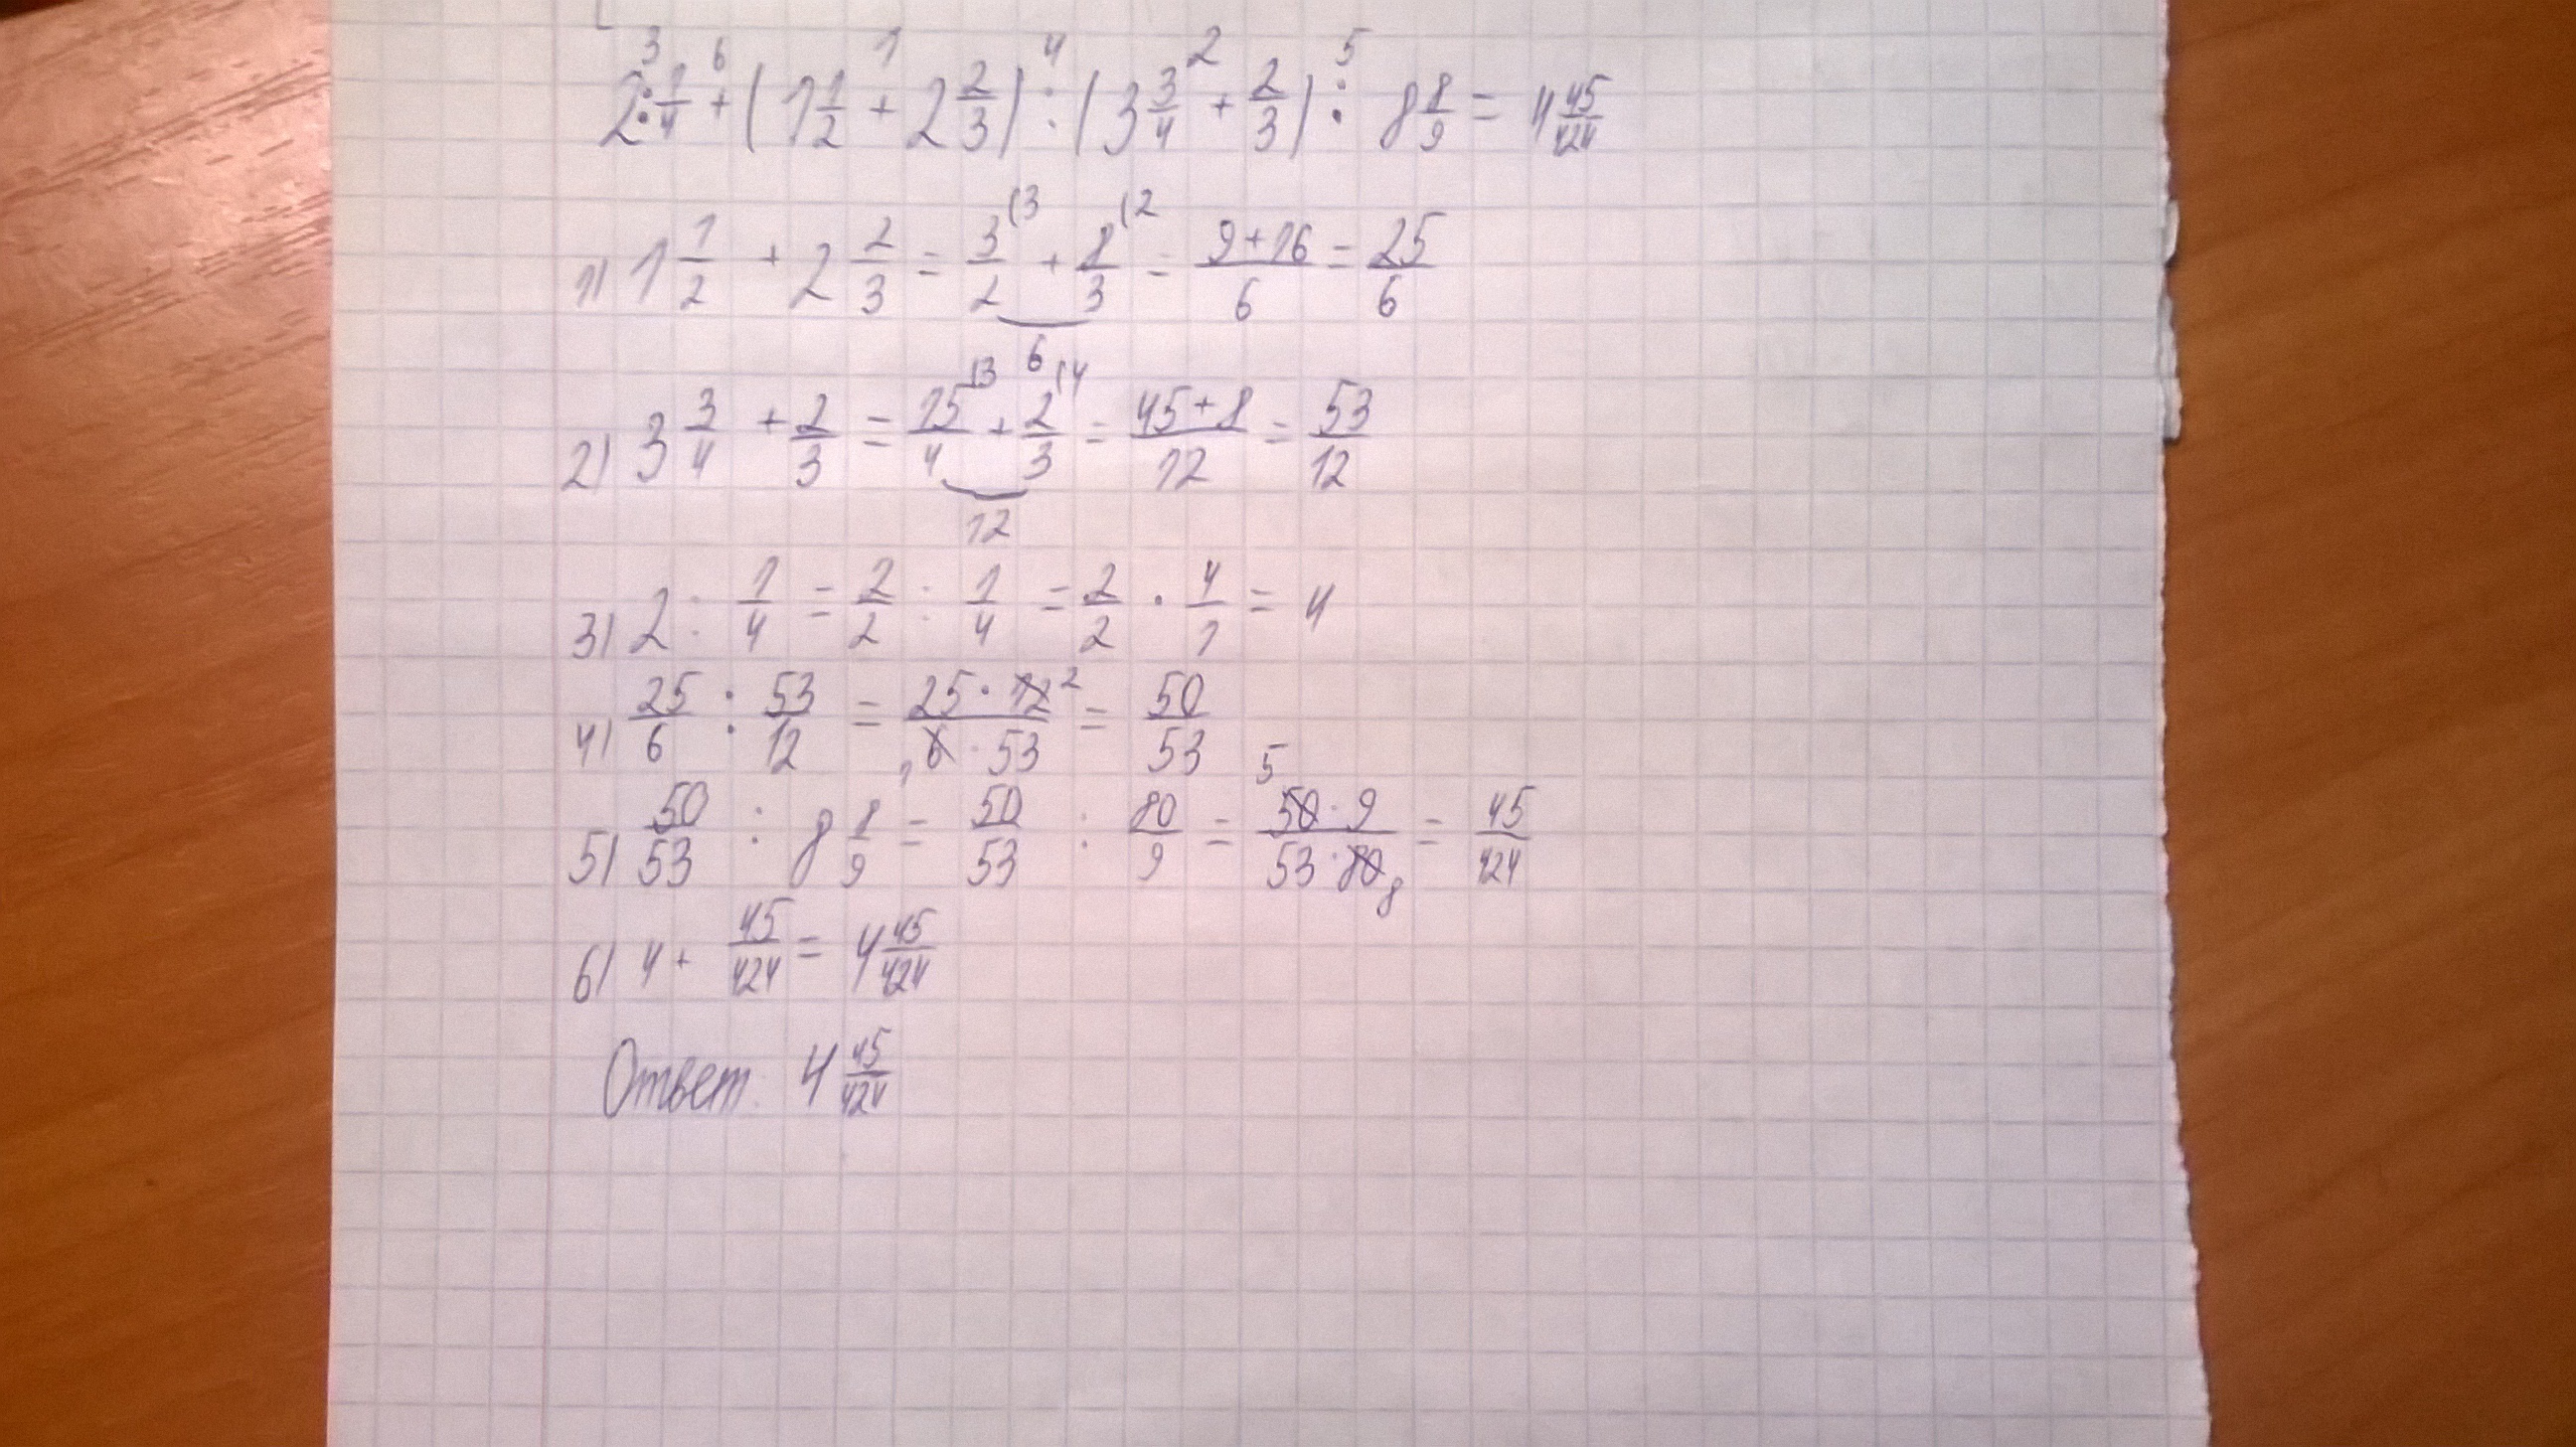 2 : 1/4 + (1 1/2 + 2 2/3) : (3 3/4 + 2/3) : 8 8/9 = 4 45/424
1) 1 1/2 + 2 2/3 = 3/2 (3 + 8/3 (2 = 9+16/6 = 25/6
6
2) 3 3/4 + 2/3 = 15/4 (3 + 2/3 (4 = 45+8/12 = 53/12
12
3) 2 : 1/4 = 2/2 : 1/4 = 2/2 · 4/1 = 4
4) 25/6 : 53/12 = 25 · 12 2/1 6 · 53 = 50/53
5) 50/53 : 8 8/9 = 50/53 : 80/9 = 5 50 · 9/53 · 80 8 = 45/424
6) 4 + 45/424 = 4 45/424
Ответ: 4 45/424